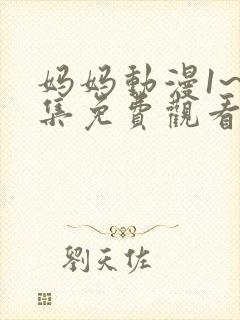 妈妈動漫1~
集免費觀看
劉天佐